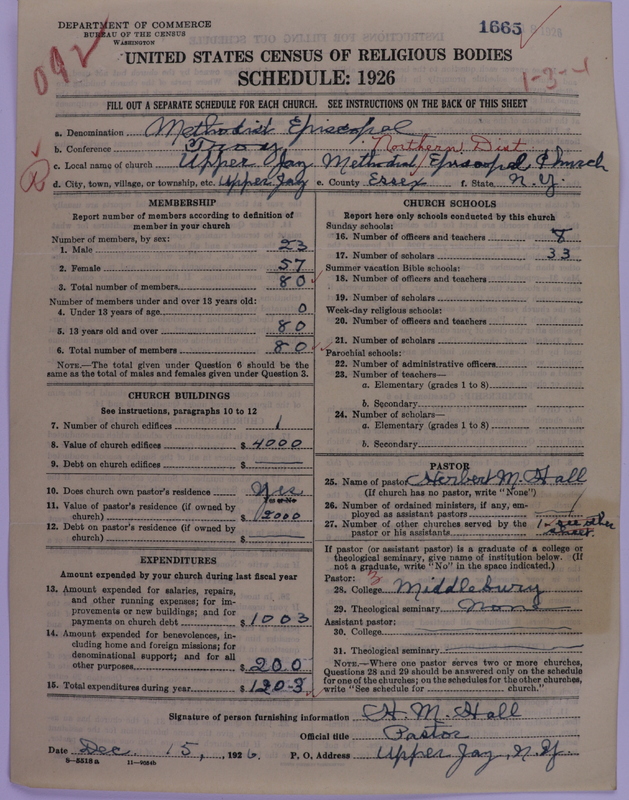 DEPARTMENT OF COMMERCE
BUREAU OF THE CENSUS
WASHINGTON
1665
092
1-3-1
UNITED STATES CENSUS OF RELIGIOUS BODIES
SCHEDULE: 1926
FILL OUT A SEPARATE SCHEDULE FOR EACH CHURCH. SEE INSTRUCTIONS ON THE BACK OF THIS SHEET
a. Denomination Methodist Episcopal
b. Conference Troy Northern Dist
c. Local name of church Upper Jay Methodist Episcopal Church
d. City, town, village, or township, etc. Upper Jay e. County Essex f. State N.Y.
R
MEMBERSHIP
Report number of members according to definition of
member in your church
Number of members, by sex:
1. Male 23
2. Female 57
3. Total number of members 80
Number of members under and over 13 years old:
4. Under 13 years of age 0
5. 13 years old and over 80
6. Total number of members 80
NOTE.—The total given under Question 6 should be
same as the total of males and females given under Question 3.
CHURCH BUILDINGS
See instructions, paragraphs 10 to 12
7. Number of church edifices 1
8. Value of church edifices $ 4000
9. Debt on church edifices $
10. Does church own pastor's residence Yes
Yes or No
11. Value of pastor's residence (if owned by
church) $ 2000
12. Debt on pastor's residence (if owned by
church) $
EXPENDITURES
Amount expended by your church during last fiscal year
13. Amount expended for salaries, repairs,
and other running expenses; for im-
provements or new buildings; and for
payments on church debt $ 1003
14. Amount expended for benevolences, in-
cluding home and foreign missions; for
denominational support; and for all
other purposes $ 200
15. Total expenditures during year $ 1203
CHURCH SCHOOLS
Report here only schools conducted by this church
Sunday schools:
16. Number of officers and teachers 8
17. Number of scholars 33
Summer vacation Bible schools:
18. Number of officers and teachers
19. Number of scholars
Week-day religious schools:
20. Number of officers and teachers
21. Number of scholars
Parochial schools:
22. Number of administrative officers
23. Number of teachers—
a. Elementary (grades 1 to 8)
b. Secondary
24. Number of scholars—
a. Elementary (grades 1 to 8)
b. Secondary
PASTOR
25. Name of pastor Herbert M. Hall
(If church has no pastor, write "None")
26. Number of ordained ministers, if any, em-
ployed as assistant pastors
27. Number of other churches served by the 1 - see other
pastor or his assistants sheet.
If pastor (or assistant pastor) is a graduate of a college or
theological seminary, give name of institution below. (If
not a graduate, write "No" in the space indicated.)
Pastor: 3
28. College Middlebury
29. Theological seminary None
Assistant pastor:
30. College
31. Theological seminary
NOTE.—Where one pastor serves two or more churches,
Questions 28 and 29 should be answered only on the schedule
for one of the churches; on the schedules for the other churches,
write "See schedule for church."
Signature of person furnishing information H. M. Hall
Official title Pastor
Date Dec. 15, 1926. P. O. Address Upper Jay, N.Y.
8-5518 a 11-9664b